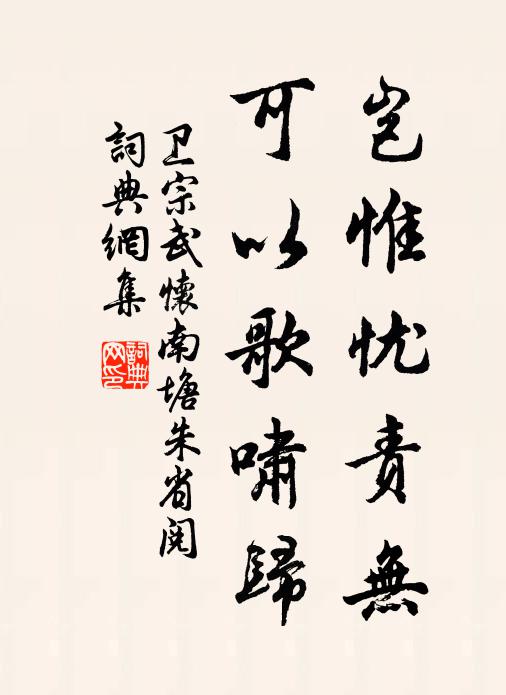 岂惟忧责無
可以歌啸歸
卫宗武懷南塘朱省阅
詞典網集
詞典
网印